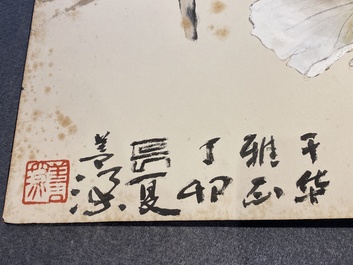 华
雅正
丁卯
長夏
善深